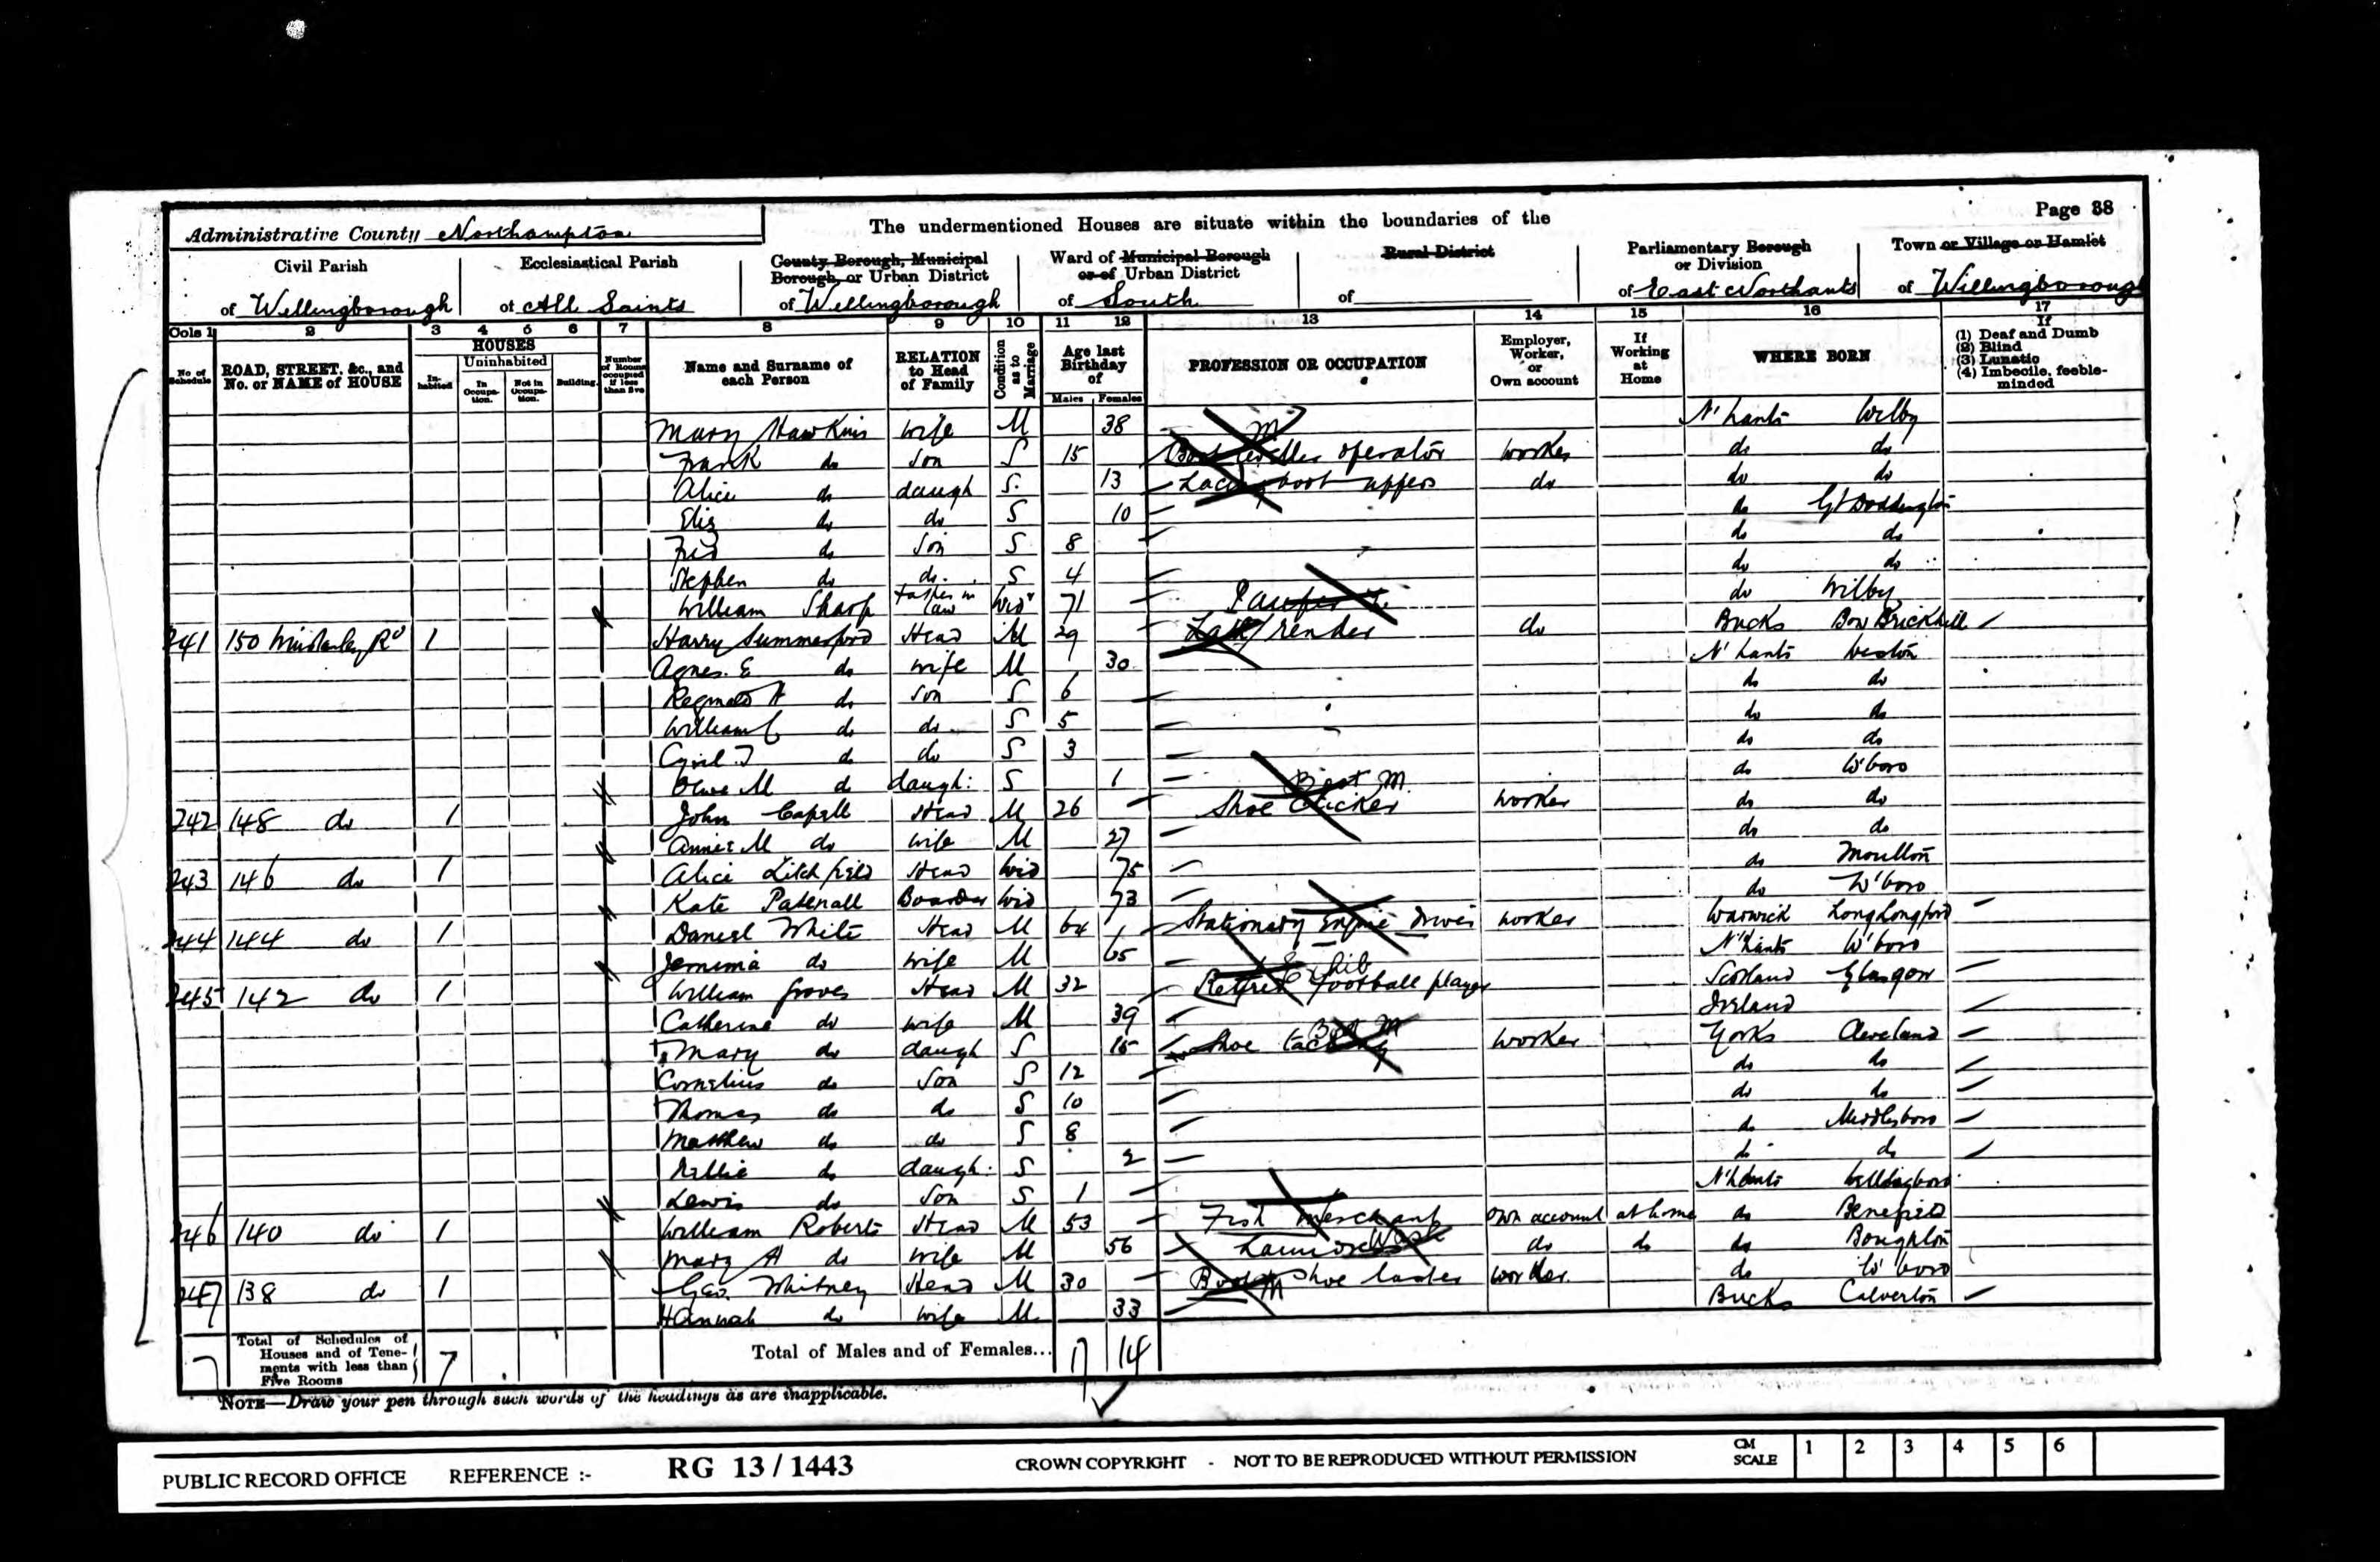 Page 38
Administrative County Northampton
The undermentioned Houses are situate within the boundaries of the
Civil Parish of Wellingborough
Ecclesiastical Parish of All Saints
County Borough, Municipal Borough, or Urban District of Wellingborough
Ward of Municipal Borough or of Urban District of South
Rural District of
Parliamentary Borough or Division of East Northants
Town or Village or Hamlet of Wellingborough
Cols 1 2 3 4 5 6 7 8 9 10 11 12 13 14 15 16 17
No. of Schedule
ROAD, STREET, &c., and No. or NAME of HOUSE
HOUSES
Inhabited
Uninhabited
In Occupation.
Not in Occupation.
Building.
Number of Rooms occupied if less than five
Name and Surname of each Person
RELATION to Head of Family
Condition as to Marriage
Age last Birthday of
Males Females
PROFESSION OR OCCUPATION
Employer, Worker, or Own account
If Working at Home
WHERE BORN
If
(1) Deaf and Dumb
(2) Blind
(3) Lunatic
(4) Imbecile, feeble-minded
Mary Hawkins wife M 38 N'hants Wilby
Frank do Son S 15 operator worker do do
Alice do daugh S. 13 boot uppers do do do
Eliz do do S 10 do Gt Doddington
Fred do Son S 8 do do
Stephen do do. S 4 do do
William Sharp Father in law Widr 71 Pauper do Wilby
241 150 Rd 1 Harry Summerford Head M 29 do Bucks Bow Brickhill
Agnes. E do wife M 30 N'hants Weston
Reginald H do Son S 6 do do
William C do do. S 5 do do
Cyril J do do S 3 do do
Olive M do daugh: S 1 do W'boro
242 148 do 1 John Capell Head M 26 Shoe Clicker Boot M. worker do do
Annie M do wife M 27 do do
243 146 do 1 Alice Litchfield Head Wid 75 do Moulton
Kate Patenall Boarder Wid 73 do W'boro
244 144 do 1 Daniel White Head M 64 Stationary Engine Driver worker Warwick Long Longford
Jemima do wife M 65 N'hants W'boro
245 142 do 1 William Groves Head M 32 Retired football player Exhib Scotland Glasgow
Catherine do wife M 39 Ireland
Mary do daugh S 15 Shoe worker Yorks Cleveland
Cornelius do Son S 12 do do
Thomas do do S 10 do do
Matthew do do S 8 do Middlesboro
Nellie do daugh: S 2 do do
Lewis do Son S 1 N'hants Wellingboro
246 140 do 1 William Roberts Head M 53 Fish Merchant own account at home do Benefield
Mary A do wife M 56 Laundress Wash do do do Boughton
247 138 do 1 Geo. Whitney Head M 30 Boot M Shoe laster worker do W'boro
Hannah do wife M. 33 Bucks Calverton
7 Total of Schedules of Houses and of Tenements with less than Five Rooms 7 Total of Males and of Females... 17 14
NOTE—Draw your pen through such words of the headings as are inapplicable.
PUBLIC RECORD OFFICE REFERENCE :- RG 13 / 1443 CROWN COPYRIGHT - NOT TO BE REPRODUCED WITHOUT PERMISSION CM SCALE 1 2 3 4 5 6